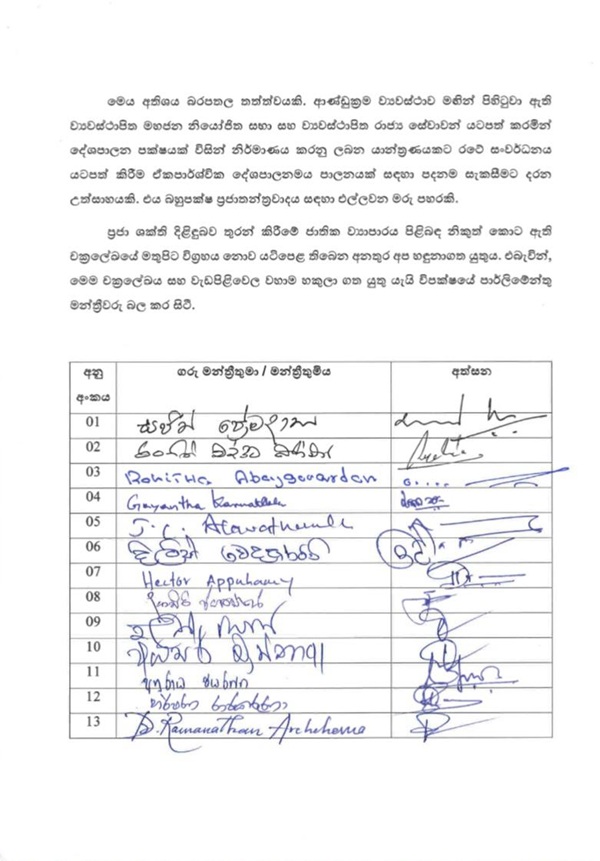 මෙය අතිශය බරපතල තත්ත්වයකි. ආණ්ඩුක්‍රම ව්‍යවස්ථාව මඟින් පිහිටුවා ඇති
ව්‍යවස්ථාපිත මහජන නියෝජිත සභා සහ ව්‍යවස්ථාපිත රාජ්‍ය සේවාවන් යටපත් කරමින්
දේශපාලන පක්ෂයක් විසින් නිර්මාණය කරනු ලබන යාන්ත්‍රණයකට රටේ සංවර්ධනය
යටපත් කිරීම ඒකපාර්ශ්වික දේශපාලනමය පාලනයක් සඳහා පදනම සැකසීමට දරන
උත්සාහයකි. එය බහුපක්ෂ ප්‍රජාතන්ත්‍රවාදය සඳහා එල්ලවන මරු පහරකි.
ප්‍රජා ශක්ති දිළිඳුබව තුරන් කිරීමේ ජාතික ව්‍යාපාරය පිළිබඳ නිකුත් කොට ඇති
චක්‍රලේඛයේ මතුපිට විග්‍රහය නොව යටිපෙළ තිබෙන අනතුර අප හඳුනාගත යුතුය. එබැවින්,
මෙම චක්‍රලේඛය සහ වැඩපිළිවෙල වහාම හකුලා ගත යුතු යැයි විපක්ෂයේ පාර්ලිමේන්තු
මන්ත්‍රීවරු බල කර සිටී.
අනු අංකය ගරු මන්ත්‍රීතුමා / මන්ත්‍රීතුමිය අත්සන
01 සජිත් ප්‍රේමදාස
02 රංජිත් මද්දුම බණ්ඩාර
03 Rohitha Abaygunawardan
04 Gayantha Karunathilleke
05 J. C. Alawathuwala
06 දිලිත්
07 Hector Appuhamy
08
09
10
11
12 හර්ෂණ රාජකරුණා
13 D. Ramanathan Archchuna